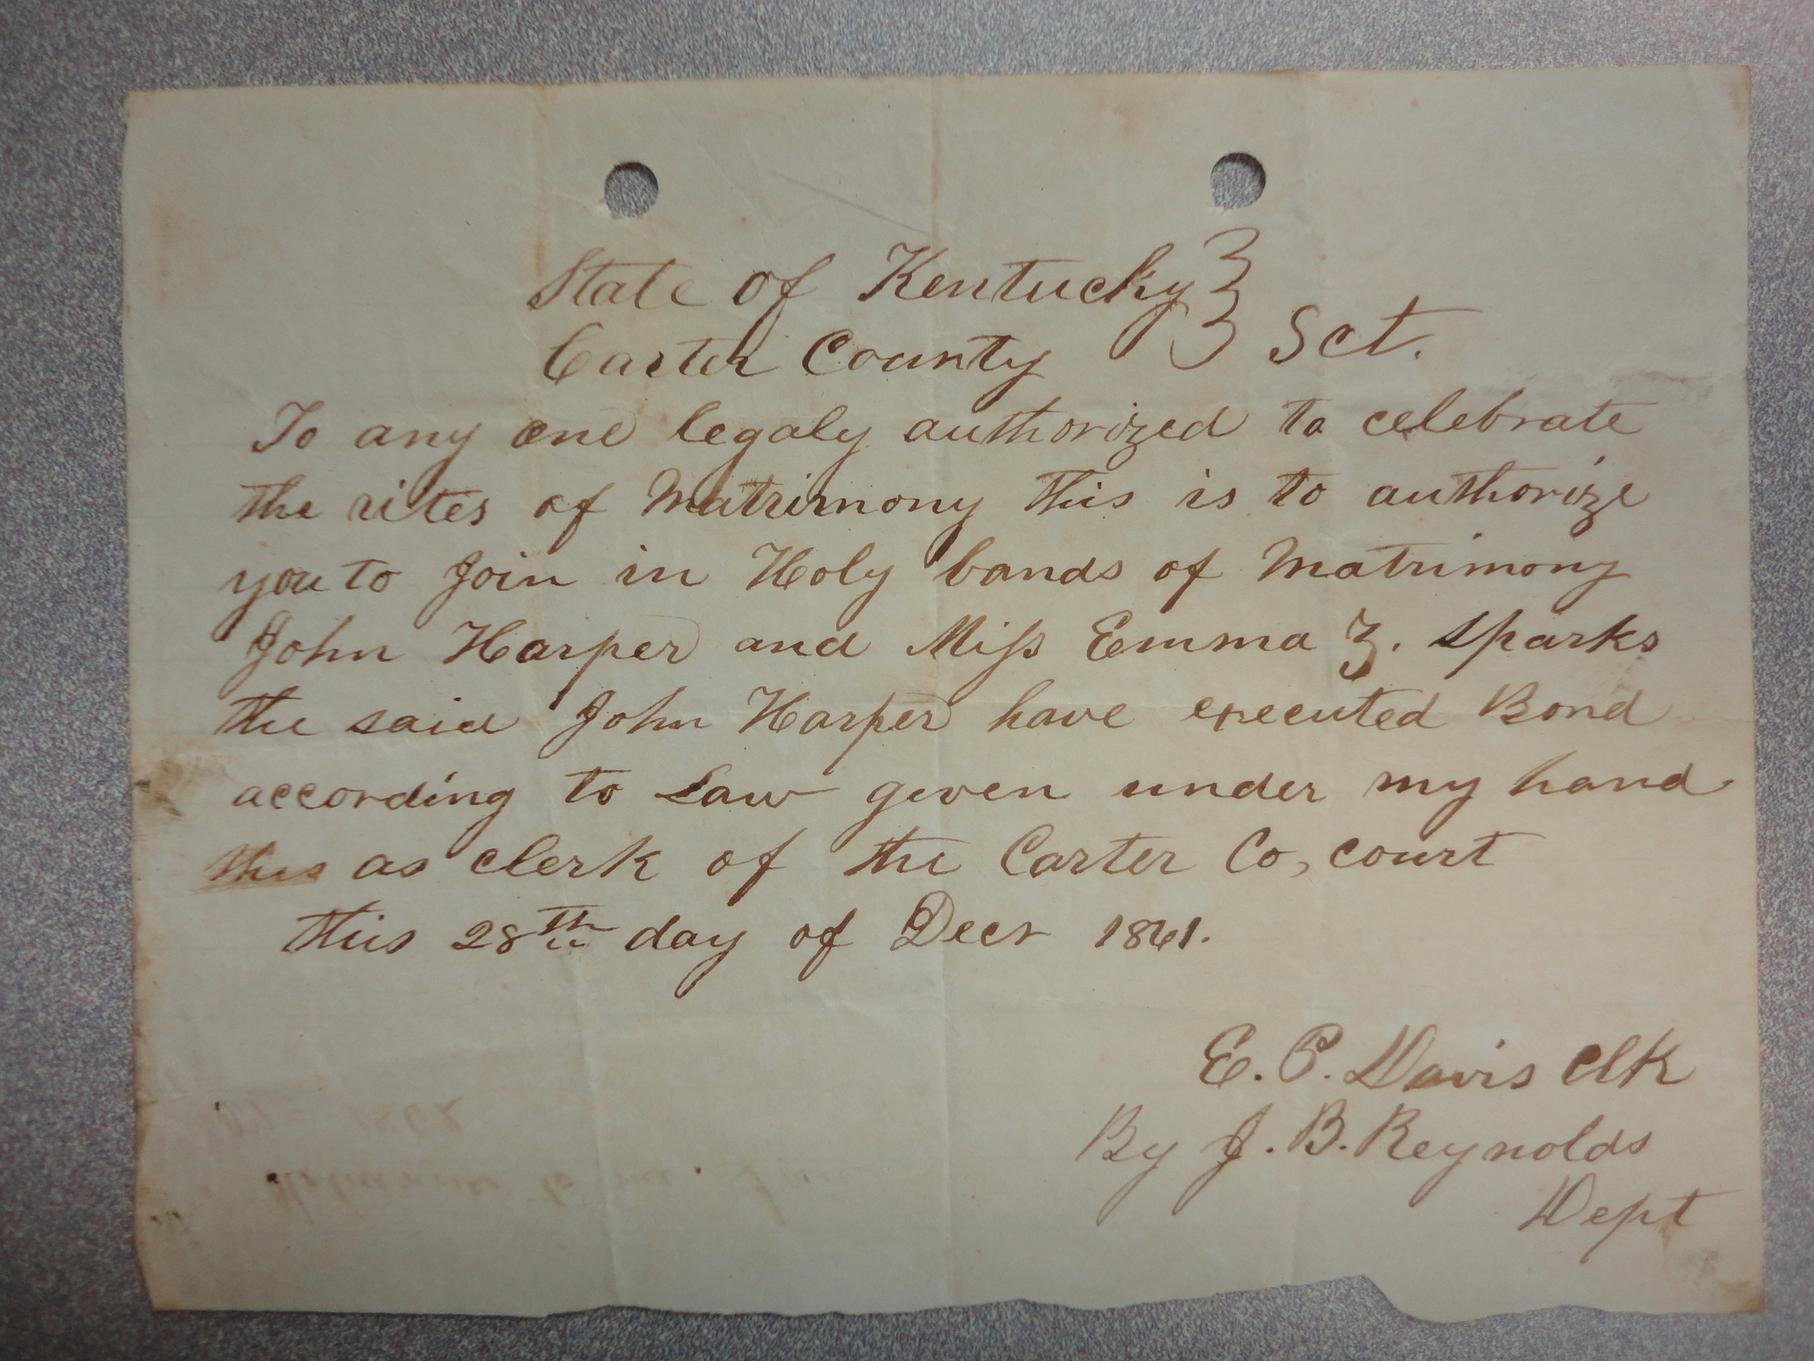 State of Kentucky }
Carter County } Sct.
To any one legaly authorized to celebrate
the rites of Matrimony this is to authorize
you to Join in Holy bands of Matrimony
John Harper and Miss Emma Z. Sparks
the said John Harper have executed Bond
according to Law given under my hand
this as clerk of the Carter Co, court
this 28th day of Decr 1861.
E. P. Davis Clk
By J. B. Reynolds
Dept